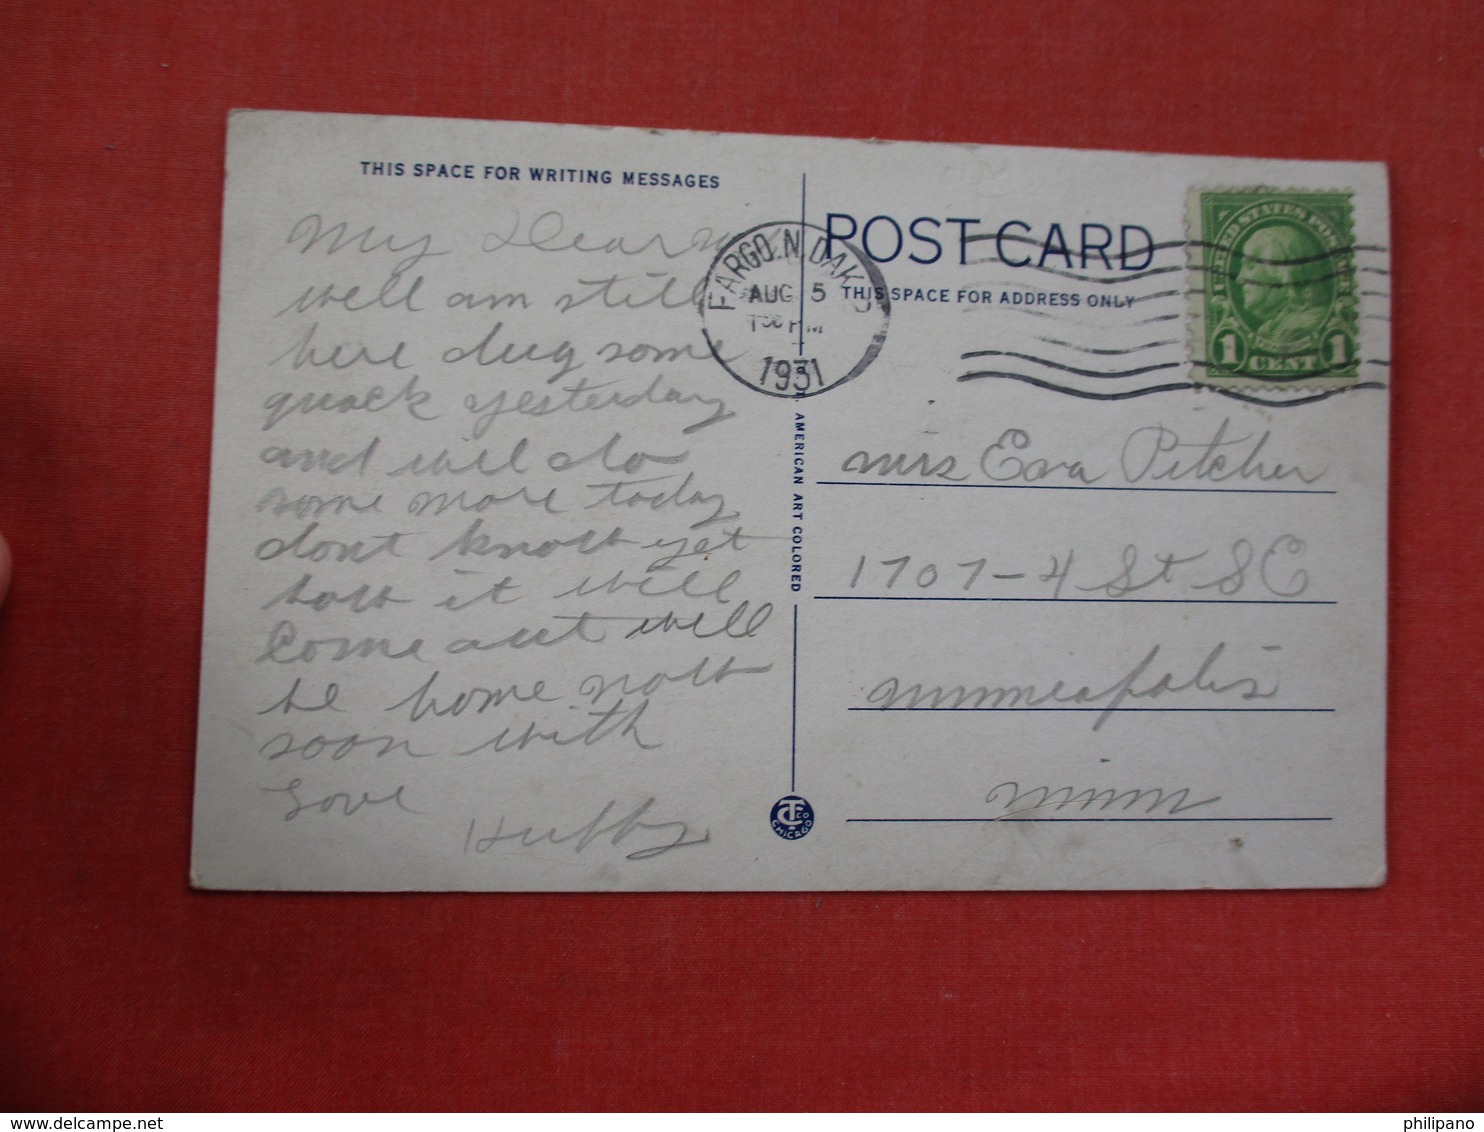 THIS SPACE FOR WRITING MESSAGES
My Dear
well am still
here dug some
quack yesterday
and will do
some more today
dont know yet
how it will
Come out will
be home now
soon with
Love
Hubby
FARGO. N. DAK
AUG 5
1 30 PM
1931
POST CARD
THIS SPACE FOR ADDRESS ONLY
UNITED STATES POSTAGE
1 CENT 1
AMERICAN ART COLORED
Mrs Eva Pitcher
1707-4 St SE
Minneapolis
Minn
CTCO
CHICAGO
www.delcampe.net
philipano